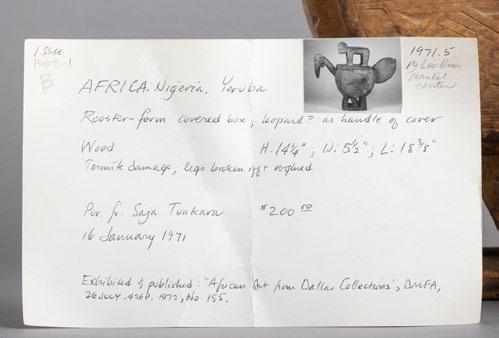 1 Slide
PHOTO-1
B
1971.5
Liv. Room
mantel
center
AFRICA. Nigeria, Yoruba
Rooster-form covered box; leopard? as handle of cover
Wood H: 14 1/4"; W: 5 1/2"; L: 18 3/8"
Termite damage; legs broken off &
Pur. fr. Saja Tunkara $200 00
16 January 1971
Exhibited & published: "African Art from Dallas Collections", DMFA,
26 JULY - 4 SEP. 1972, No 155.